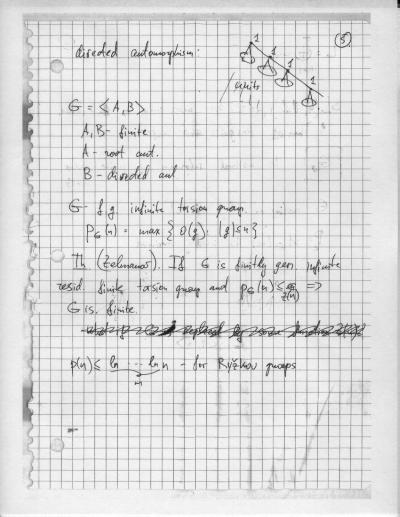 5
directed automorphism:
1
1
1
1
G = <A, B>
A, B - finite
A - root aut.
B - directed aut
G - f g infinite torsion group.
p_G(n) = max { O(g): |g| ≤ n}
Th (Zelmanov). If G is finitely gen. infinite
resid. finite torsion group and p_G(n) ≤ =>
G is. finite.
p(n) ≤ ln ... ln n - for Ryžkov groups
m